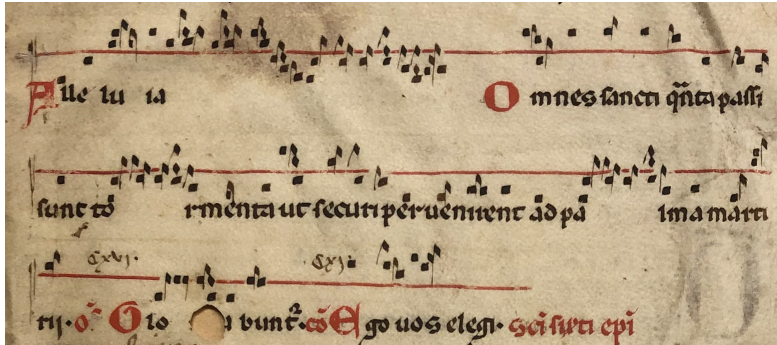 Alle lu ia Omnes sancti qñta passi
sunt tō rmenta ut securi peruenirent ad pa lma marti
cxvi. cxi.
rii. Glo bunt. cō Ego uos elegi. sci sixti epi